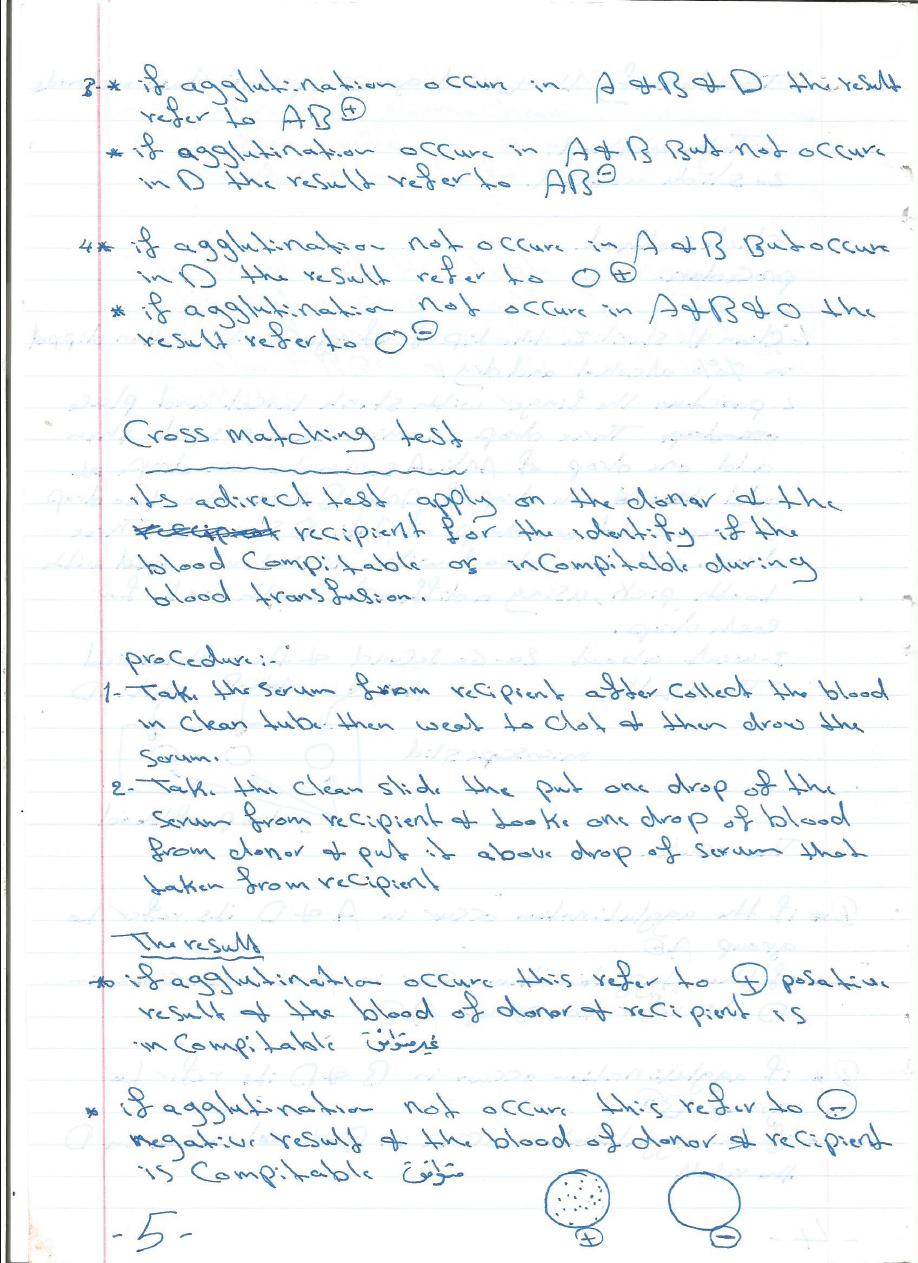 3-* if agglutination occure in A & B & D the result
refer to AB ⊕
* if agglutination occure in A & B But not occure
in D the result refer to AB ⊖
4* if agglutination not occure in A & B But occure
in D the result refer to O ⊕
* if agglutination not occure in A & B & O the
result refer to O ⊖
Cross matching test
its adirect test apply on the donor & the
recipient for the identify if the
blood Compitable or inCompitable during
blood transfusion.
procedure:-
1- Take the serum from recipient after collect the blood
in clean tube then weat to clot & then drow the
serum.
2- Take the clean slide the put one drop of the
serum from recipient & tooke one drop of blood
from donor & put it above drop of serum that
taken from recipient
The result
* if agglutination occure this refer to ⊕ posative
result & the blood of donor & recipient is
in Compitable غير متوافق
* if agglutination not occure this refer to ⊖
negative result & the blood of donor & recipient
is Compitable متوافق
+ -
-5-